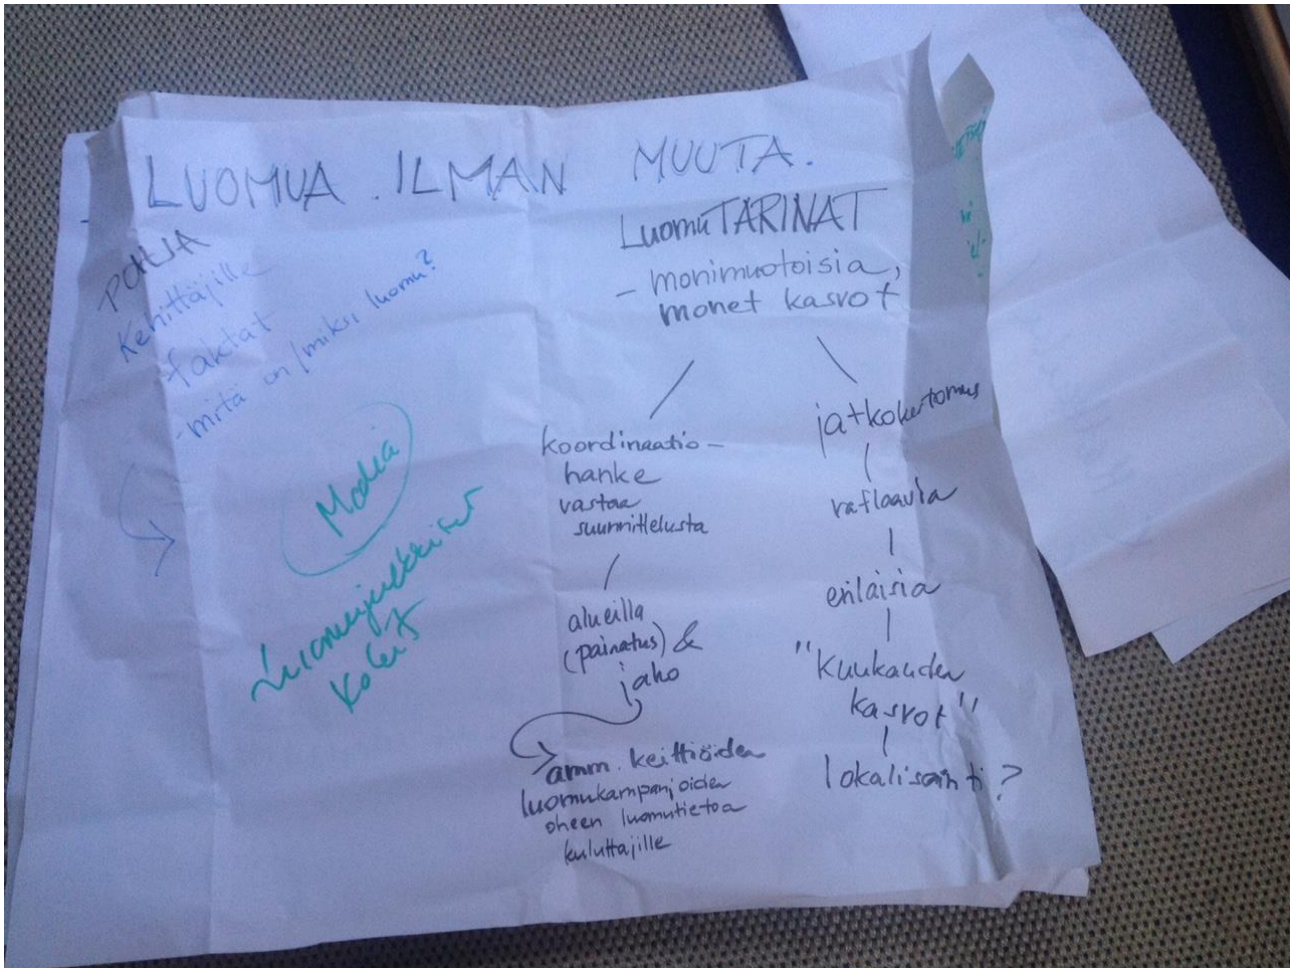 LUOMUA . ILMAN MUUTA.
POHJA
Kehittäjille
faktat
- mitä on / miksi luomu?
Media
LuomuTARINAT
- monimuotoisia,
monet kasvot
koordinaatio-
hanke
vastaa
suunnittelusta
alueilla
(painatus) &
jako
amm. keittiöiden
luomukampanjoiden
oheen luomutietoa
kuluttajille
jatkokertomus
raflaavia
erilaisia
"Kuukauden
kasvot"
lokalisointi?